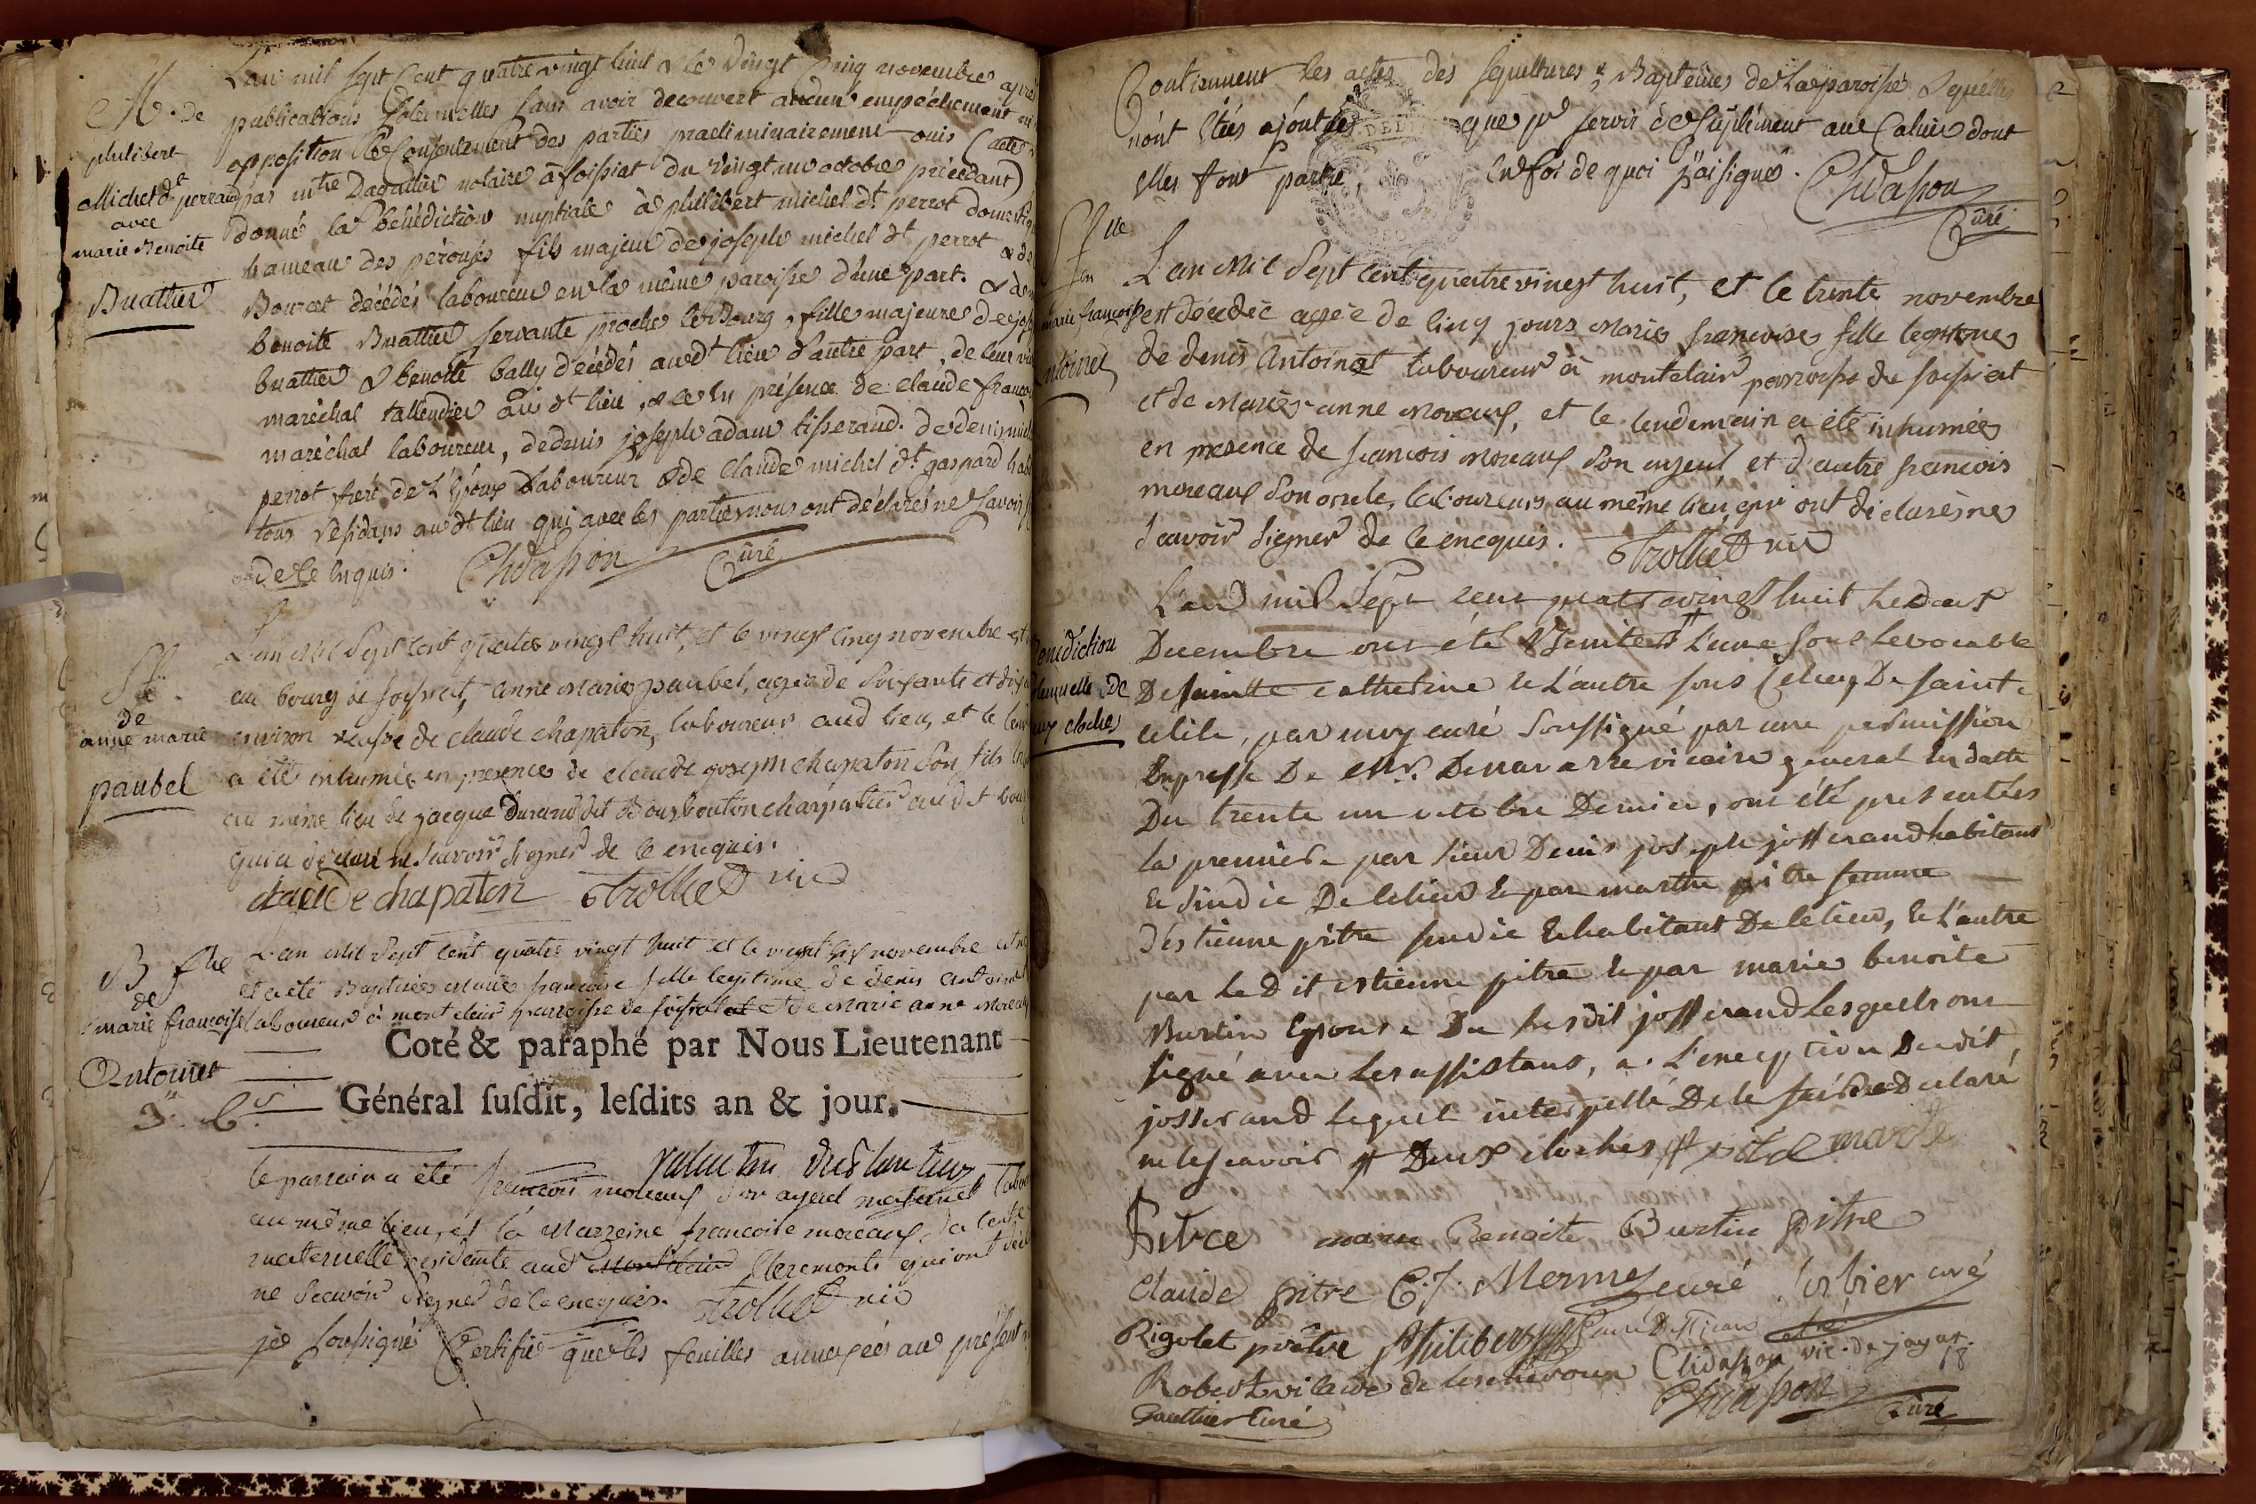 L'an mil sept cent quatre vingt huit & le vingt cinq novembre après
M. de
publications solemnelles sans avoir decouvert aucun empéchement ni
philibert
opposition le consentement des parties praeliminairement ouis (acte
Michel dt perraud
par mtre Dagallier notaire à foissiat du vingt un octobre précédant)
avec
donné la bénédiction nuptiale à philibert michel dt perrot
marie Benoite
hameau des pérouses fils majeur de joseph michel dt perrot & de
Buattier
Bourcet décédés laboureur en la même paroisse d'une part. &
benoite Buattier servante proche le Bourg, fille majeure de
buattier & benoite bally décédés audt lieu d'autre part, de leur
maréchal tallendier audt lieu, & ce en présence de claude
maréchal laboureur, de denis joseph adam tisserand. de denis
perrot frere de l'époux laboureur & de claude michel dt gaspard
tous résidans audt lieu qui avec les parties nous ont déclarés ne savoir
de ce enquis. Chvasson Curé
L'an mil sept cent quatre vingt huit, et le vingt cinq novembre est
Sre
au bourg de foissiat, anne marie paubel, agée de soixante et dix
de
anne marie
environ veufve de claude chapaton, laboureur aud lieu, et le
paubel
a été inhumée en presence de claude joseph chapaton son fils
au même lieu de jacque Durand dit Bourbouton charpentier audit
qui a déclaré ne sçavoir signer de ce enequis.
claude chapaton Trolliet vic
B flle
L'an mil sept cent quatre vingt huit et le vingt six novembre est
de
et a été Baptisée Marie francoise fille legitime de denis
marie françoise
laboureur à montclair parroisse de foissiat et de Marie anne
Antoinet
Coté & paraphé par Nous Lieutenant
Général susdit, lesdits an & jour.
le parrain a été françois moreauf son ayeul maternel
au même lieu, et la Marreine francoise moreauf, sa tente
maternelle residente aud Cleremonts qui ont
ne sçavoir signer de ce enequis. Trolliet vic
je soussigné Certifie que les feuilles annexées au présent
Contiennent les actes des sépultures & Baptêmes de la paroisse
n'ont étées ajoutées que pr servir de suplément au Cahier dont
elles font partie, en foi de quoi j'ai signé. Chvasson
Curé
L'an Mil Sept cent quatre vingt huit, et le trente novembre
marie françoise
est décédée agée de cinq jours Marie francoise fille legitime
Antoinet
de denis Antoinet laboureur à montclair parroisse de foissiat
et de Marie-anne Moreauf, et le lendemain a été inhumée
en presence de francois Moreauf son ayeul et d'autre francois
moreauf son oncle, laboureurs au même lieu, qui ont déclarés ne
sçavoir signer de ce enequis. Trolliet vic
L'an mil Sept cent quatre vingt huit le deux
Benediction
Decembre ont été Benites # l'une sous le vocable
De sainte catherine et L'autre sous celuy De sainte
cloches
cecile, par moy curé soussigné par une permission
Expresse De Mr. Denavarre vicaire general En datte
Du trente un octobre Dernier, ont été presentées
la premiere par sieur Denis joseph josserand habitant
et sindic De ce lieu et par marthe pitre femme
d'estienne pitre sindic et habitant De ce lieu, et L'autre
par Le Dit estienne pitre et par marie benoite
Burtin Epouse Du susdit josserand Lesquels ont
signé avec Les assistans, a L'exception Dudit
josserand Lequel interpellé De le faire a Declaré
ne le sçavoir # Deux cloches # pitre marthe
Pitre marie Benoite Burtin pitre
Claude pitre C. J. Mermey curé Corbier curé
Rigolet prêtre Philibert
Robert vicaire de lescheroux Chvasson vic. de jayat
Gauthier Curé Chvasson Curé